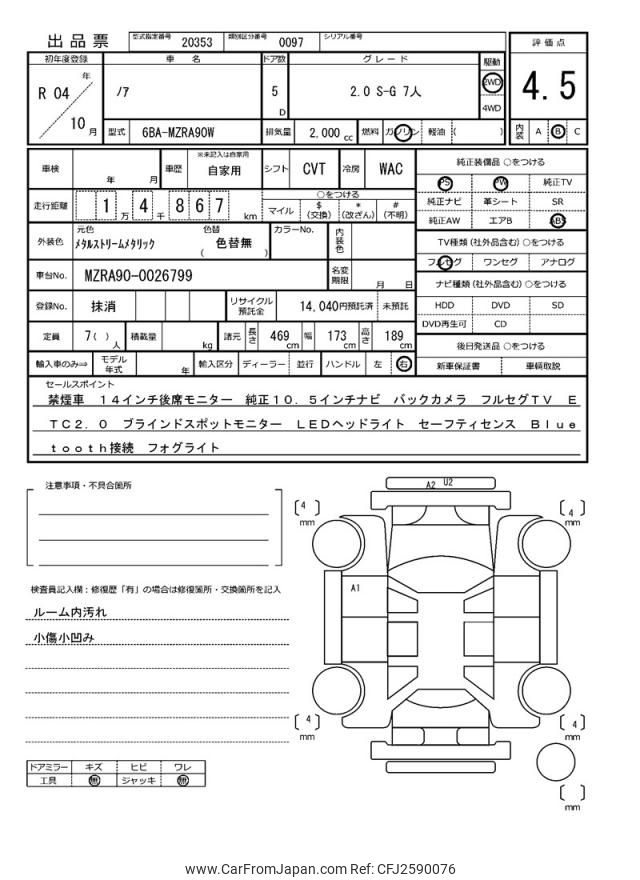 出品票 型式指定番号 20353 類別区分番号 0097 シリアル番号
評価点
4.5
内装 A B C
初年度登録 車名 ドア数 グレード 駆動
R 04 年 10 月
ﾉｱ 5 D 2.0 S-G 7人 2WD 4WD
型式 6BA-MZRA90W 排気量 2,000 cc 燃料 ガソリン 軽油 ( )
車検 年 月 車歴 ※未記入は自家用 自家用 シフト CVT 冷房 WAC
走行距離 1 万 4 千 8 6 7 km
○をつける
マイル $ (交換) * (改ざん) # (不明)
外装色 元色 ﾒﾀﾙｽﾄﾘｰﾑﾒﾀﾘｯｸ 色替 ( 色替無 ) カラーNo. 内装色
車台No. MZRA90-0026799 名変期限 月 日
登録No. 抹消 リサイクル預託金 14,040円預託済 未預託
定員 7( ) 人 積載量 kg 諸元 長さ 469 cm 幅 173 cm 高さ 189 cm
輸入車のみ⇒ モデル年式 年 輸入区分 ディーラー 並行 ハンドル 左 右
純正装備品 ○をつける
PS PW 純正TV
純正ナビ 革シート SR
純正AW エアB ABS
TV種類(社外品含む)○をつける
フルセグ ワンセグ アナログ
ナビ種類(社外品含む)○をつける
HDD DVD SD
DVD再生可 CD
後日発送品 ○をつける
新車保証書 車輌取説
セールスポイント
禁煙車　１４インチ後席モニター　純正１０．５インチナビ　バックカメラ　フルセグＴＶ　Ｅ
ＴＣ２．０　ブラインドスポットモニター　ＬＥＤヘッドライト　セーフティセンス　Ｂｌｕｅ
ｔｏｏｔｈ接続　フォグライト
注意事項・不具合箇所
検査員記入欄：修復歴「有」の場合は修復箇所・交換箇所を記入
ルーム内汚れ
小傷小凹み
ドアミラー キズ ヒビ ワレ
工具 無 ジャッキ 無
A2 U2
[ 4 ] mm
[ 4 ] mm
A1
[ 4 ] mm
[ 4 ] mm
[ ] mm
www.CarFromJapan.com Ref: CFJ2590076